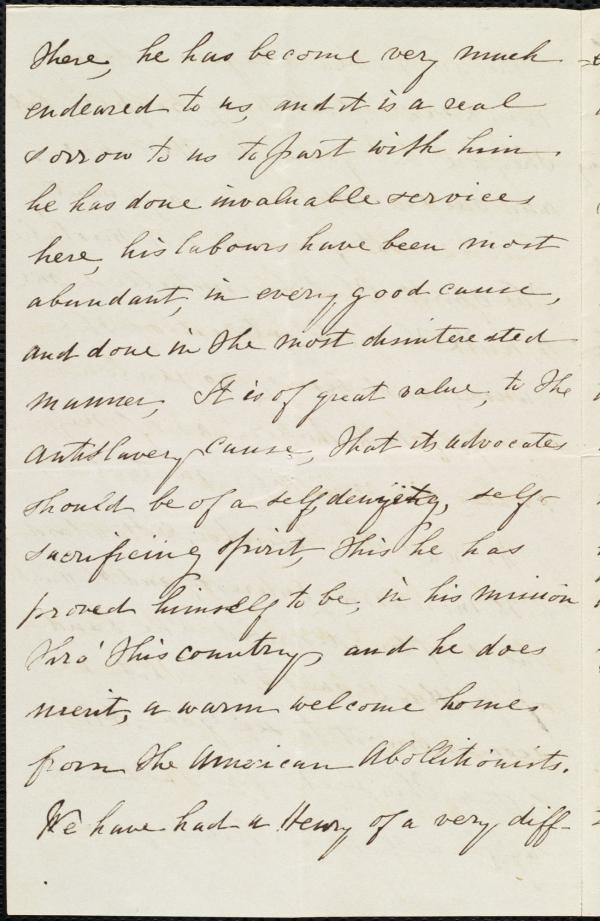 there, he has become very much
endeared to us, and it is a real
sorrow to us to part with him.
he has done invaluable services
here, his labours have been most
abundant, in every good cause,
and done in the most disinterested
manner, It is of great value, to the
antislavery cause, that its advocates
should be of a self, denying, self-
sacrificing spirit, this he has
proved himself to be, in his mission
thro' this country and he does
merit, a warm welcome home,
from the American Abolitionists.
We have had a Henry of a very diff-